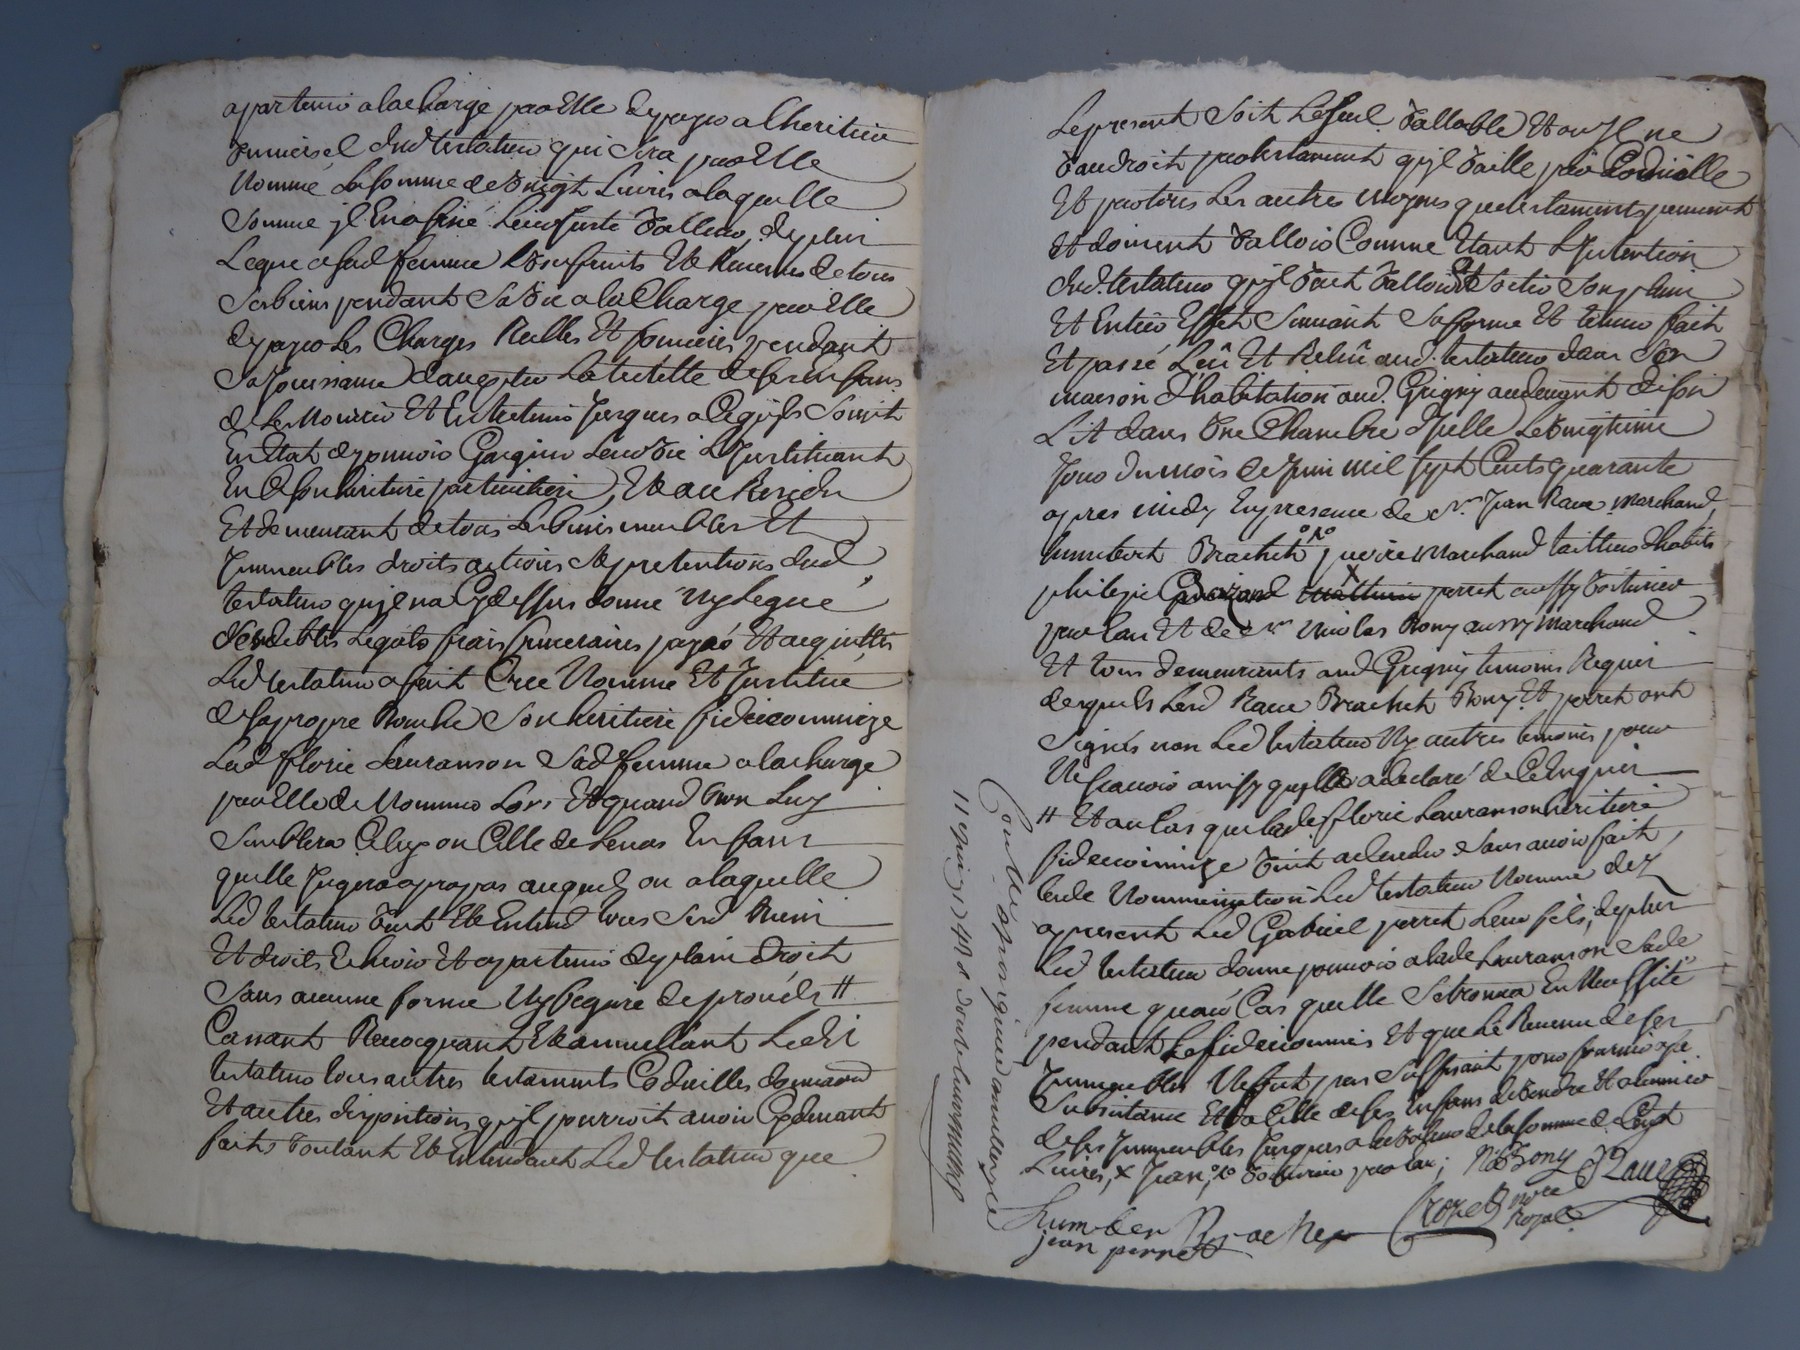 apartenir a la charge par Elle de payer a lheritier
universel dud testateur qui sera par Elle
Nommé La somme de Vingt Livres a laquelle
somme jl En a fixé Leur juste Valleur, de plus
Legue a sad femme Les fruits Et Revenus de tous
ses biens pendant sa Vie a la Charge par Elle
de payer Les Charges Reelles Et foncieres pendant
sa jouissance daccepter La tutelle de ses Enfans
de Les Nourrir Et Entretenir Jusques a ce quils soint
En Etat de pouvoir Gaigner Leur Vie L'Jnstituant
En ce son heritiere particuliere, Et au Residu
Et demeurant de tous Les biens meubles Et
Jmmeubles droits actions Et pretentions dud
testateur quil na Cy dessus donné Ny Legué
Ses debtes Legats frais funeraires payés Et acquittés
Led testateur a fait Creé Nommé Et Jnstitué
de sa propre Bouche son heritiere fideicommize
Lad florie Lauranson sad femme a la charge
par Elle de Nommer Lors Et quand bon Luy
semblera Celuy ou Celle de Leurs Enfans
quelle Jugera a propos auquel ou a laquelle
Led testateur Veut Et Entend tous sesd Biens
Et droits Echeoir Et apartenir de plain droit
sans aucune forme Ny figure de procés #
Cassant Revocquant Et annullant Ledit
testateur tous autres testaments Codicilles donnaons
Et autres dispositions quil pourroit avoir Cy devant
faits Voulant Et Entendant Led testateur que
Le present soit Le seul Vallable Et ou Jl ne
Vaudroit par testament quil Vaille par Codicille
Et par tous Les autres moyens que testaments peuvent
Et doivent Valloir Comme Etant L'Jntention
dud. testateur quil Veut Valloir Et sortir son plein
Et Entier Effet suivant sa forme Et teneur fait
Et passé Leu Et Releu aud. testateur dans son
maison d'habitation aud. Grigny au devant de son
Lit dans Une Chambre d'jcelle Le Vingtieme
Jour du mois de Juin mil sept Cents quarante
apres midy En presence de Sr. Jean Rave marchand,
humbert Brachet marchand tailleur d'habits
philipe perret aussy Voiturier
par Eau Et de Sr. Nicolas Bony aussy marchand
Et tous demeurants aud Grigny temoins Requis
desquels Lesd Rave Brachet Bony Et perret ont
signés non Led testateur Ny autres temoins pour
Ne scavoir ainsy quils ont declaré de Ce Enquis
# Et au Cas que lade florie Lauranson heritiere
fideicommize Vint a deceder sans avoir fait
lade Nommination Led testateur Nomme dez
a present Led Gabriel perret Leur fils, de plus
Led testateur donne pouvoir a lade Lauranson sade
femme quau Cas quelle se trouva En Necessité
pendant Le fideicommis Et que Le Revenu de ses
Jmmeubles Ne fut pas suffisant pour fournir a sa
subsistance Et a Celle de ses Enfans de Vendre Et alienner
desd Jmmeubles Jusques a la Valleur de la somme de Cent
Livres, x Jean, Voiturier par Eau; N Bony JRave
humber Brachet nore Royal
jean perret
Controllé a
11e juin 1740